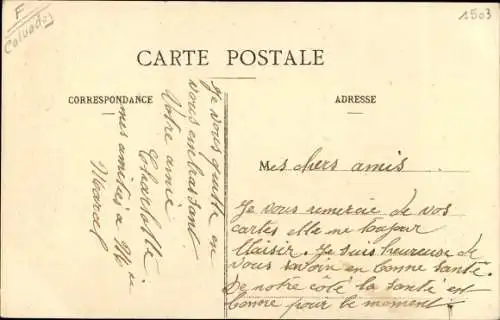 F
Calvados
1503
CARTE POSTALE
CORRESPONDANCE
ADRESSE
Mes chers amis
Je vous remercie de vos
cartes elle me toujour
Plaisir. Je suis heureuse de
vous savoir en bonne santé.
De notre côté la santé est
bonne pour le moment
Je vous quitte en
vous embrassant
Votre amie
Charlotte
mes amitiés a
Marcel